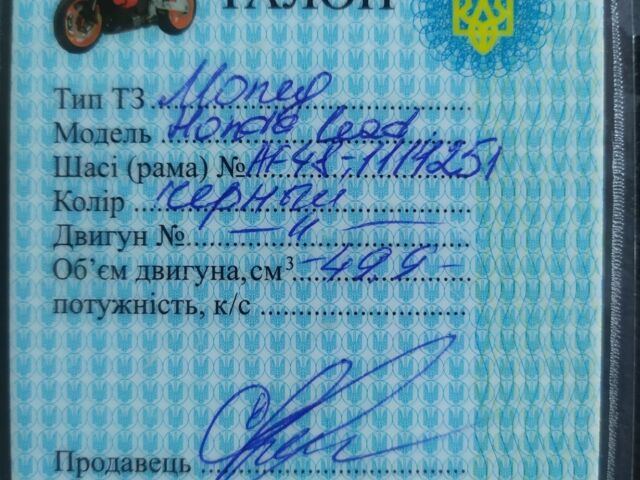 ТАЛОН
Тип ТЗ Мопед
Модель Honda Lead
Шасі (рама) № AF48-1114251
Колір черный
Двигун № — " —
Об'єм двигуна, см³ -49,9-
потужність, к/с
Продавець